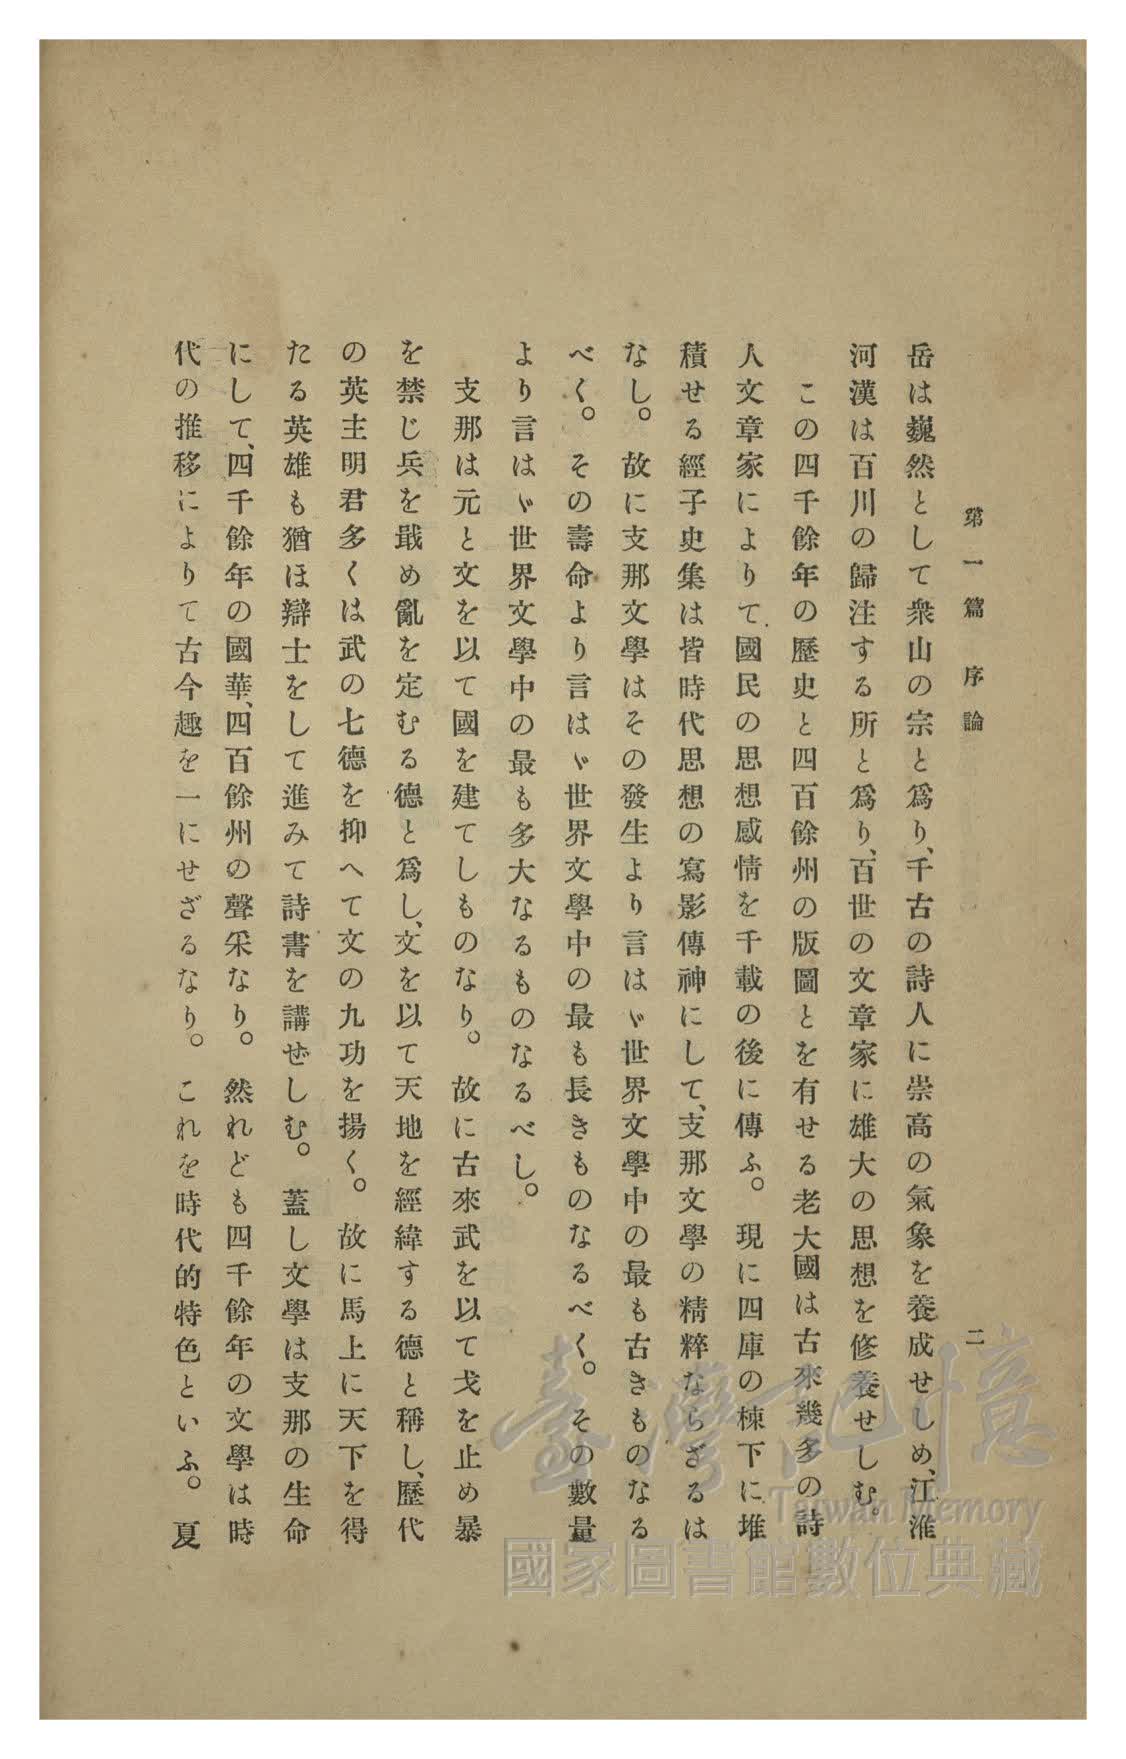 第一篇　序論　二
岳は巍然として衆山の宗と爲り、千古の詩人に崇高の氣象を養成せしめ、江淮
河漢は百川の歸注する所と爲り、百世の文章家に雄大の思想を修養せしむ。
この四千餘年の歷史と四百餘州の版圖とを有せる老大國は古來幾多の詩
人文章家によりて國民の思想感情を千載の後に傳ふ。　現に四庫の棟下に堆
積せる經子史集は皆時代思想の寫影傳神にして、支那文學の精粹ならざるは
なし。　故に支那文學はその發生より言はゞ世界文學中の最も古きものなる
べく。　その壽命より言はゞ世界文學中の最も長きものなるべく。　その數量
より言はゞ世界文學中の最も多大なるものなるべし。
支那は元と文を以て國を建てしものなり。　故に古來武を以て戈を止め暴
を禁じ兵を戢め亂を定むる德と爲し、文を以て天地を經緯する德と稱し、歷代
の英主明君多くは武の七德を抑へて文の九功を揚く。　故に馬上に天下を得
たる英雄も猶ほ辯士をして進みて詩書を講ぜしむ。　蓋し文學は支那の生命
にして、四千餘年の國華、四百餘州の聲采なり。　然れども四千餘年の文學は時
代の推移によりて古今趣を一にせざるなり。　これを時代的特色といふ。　夏
臺灣記憶
Taiwan Memory
國家圖書館數位典藏